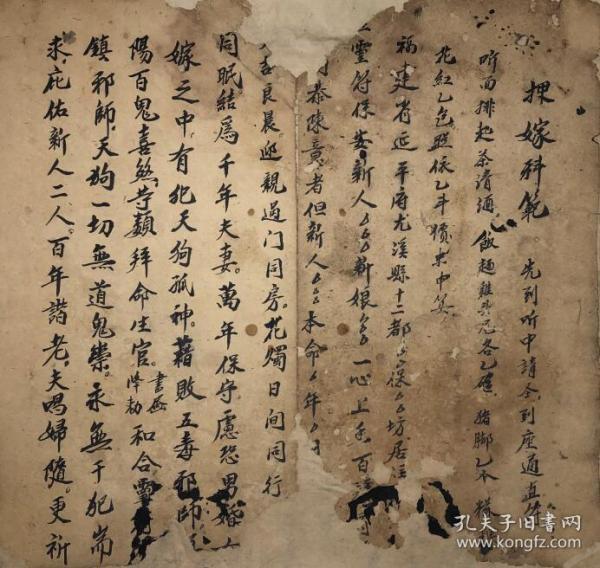 押嫁科範 先到听中請全到座通直
听面排起茶清酒飯麵雞各乙碗猪脚乙本
花紅乙包照依乙斗
福建省延平府尤溪縣十二都保坊居住
靈符保安新人新娘一心上香百
恭陳意者但新人本命年月
吉良晨迎親過门同房花燭日间同行
同眠結為千年夫妻。萬年保守慮恐男婚
嫁之中有犯天狗孤神。藉敗五毒邪師
陽百鬼喜煞等類拜命生官。書符降勅和合靈符
鎮邪師天狗一切無道鬼祟。永無干犯耑
求庇佑新人二人。百年諧老。夫唱婦隨。更祈
孔夫子旧书网
www.kongfz.com